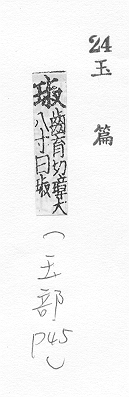 24
玉篇
琡
齒育切璋大
八寸曰琡
(玉部
P45)